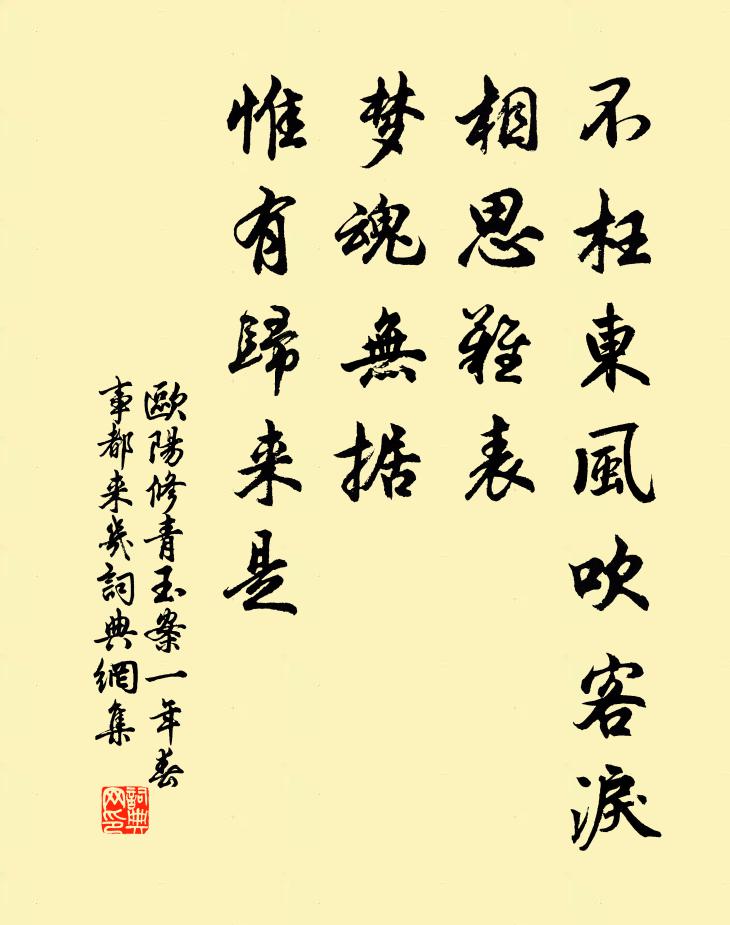 不枉東風吹客淚
相思難表
梦魂無据
惟有歸来是
歐陽修青玉案一年春
事都来幾詞典網集
詞典
网印